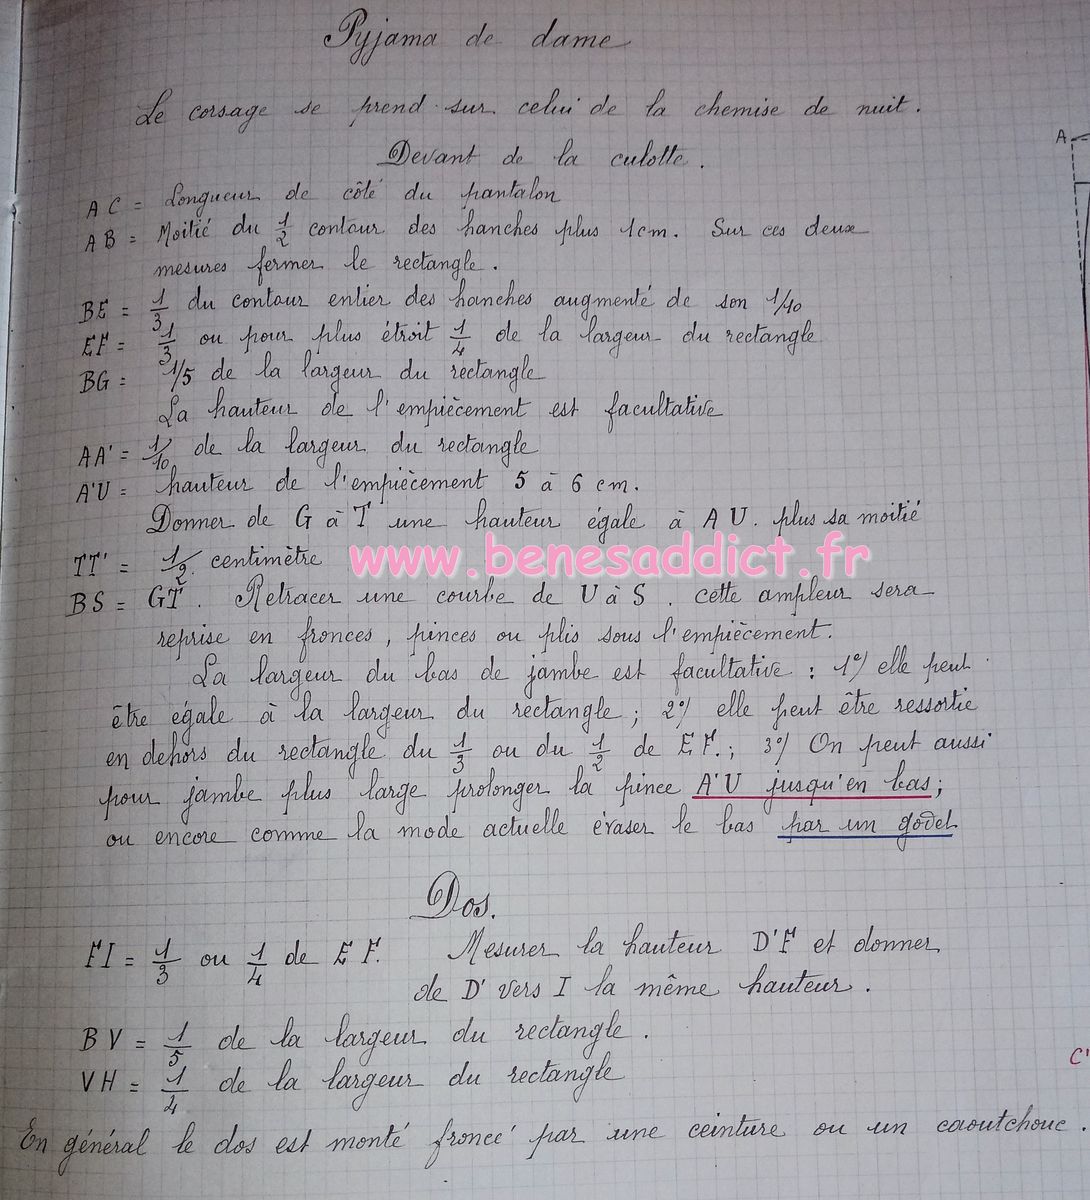 Pyjama de dame
Le corsage se prend sur celui de la chemise de nuit.
A
Devant de la culotte.
AC = Longueur de côté du pantalon
AB = Moitié du 1/2 contour des hanches plus 1cm. Sur ces deux
mesures fermer le rectangle.
BE = 1/3 du contour entier des hanches augmenté de son 1/10
EF = 1/3 ou pour plus étroit 1/4 de la largeur du rectangle
BG = 1/5 de la largeur du rectangle
La hauteur de l'empiècement est facultative
AA' = 1/10 de la largeur du rectangle
A'U = hauteur de l'empiècement 5 à 6 cm.
Donner de G à T une hauteur égale à AU. plus sa moitié
TT' = 1/2 centimètre
www.benesaddict.fr
BS = GT. Retracer une courbe de U à S. cette ampleur sera
reprise en fronces, pinces ou plis sous l'empiècement.
La largeur du bas de jambe est facultative : 1°/ elle peut
être égale à la largeur du rectangle ; 2°/ elle peut être ressortie
en dehors du rectangle du 1/3 ou du 1/2 de EF. ; 3°/ On peut aussi
pour jambe plus large prolonger la pince A'U jusqu'en bas ;
ou encore comme la mode actuelle évaser le bas par un godet
Dos.
FI = 1/3 ou 1/4 de EF. Mesurer la hauteur D'F et donner
de D' vers I la même hauteur.
BV = 1/5 de la largeur du rectangle.
C'
VH = 1/4 de la largeur du rectangle
En général le dos est monté froncé par une ceinture ou un caoutchouc.